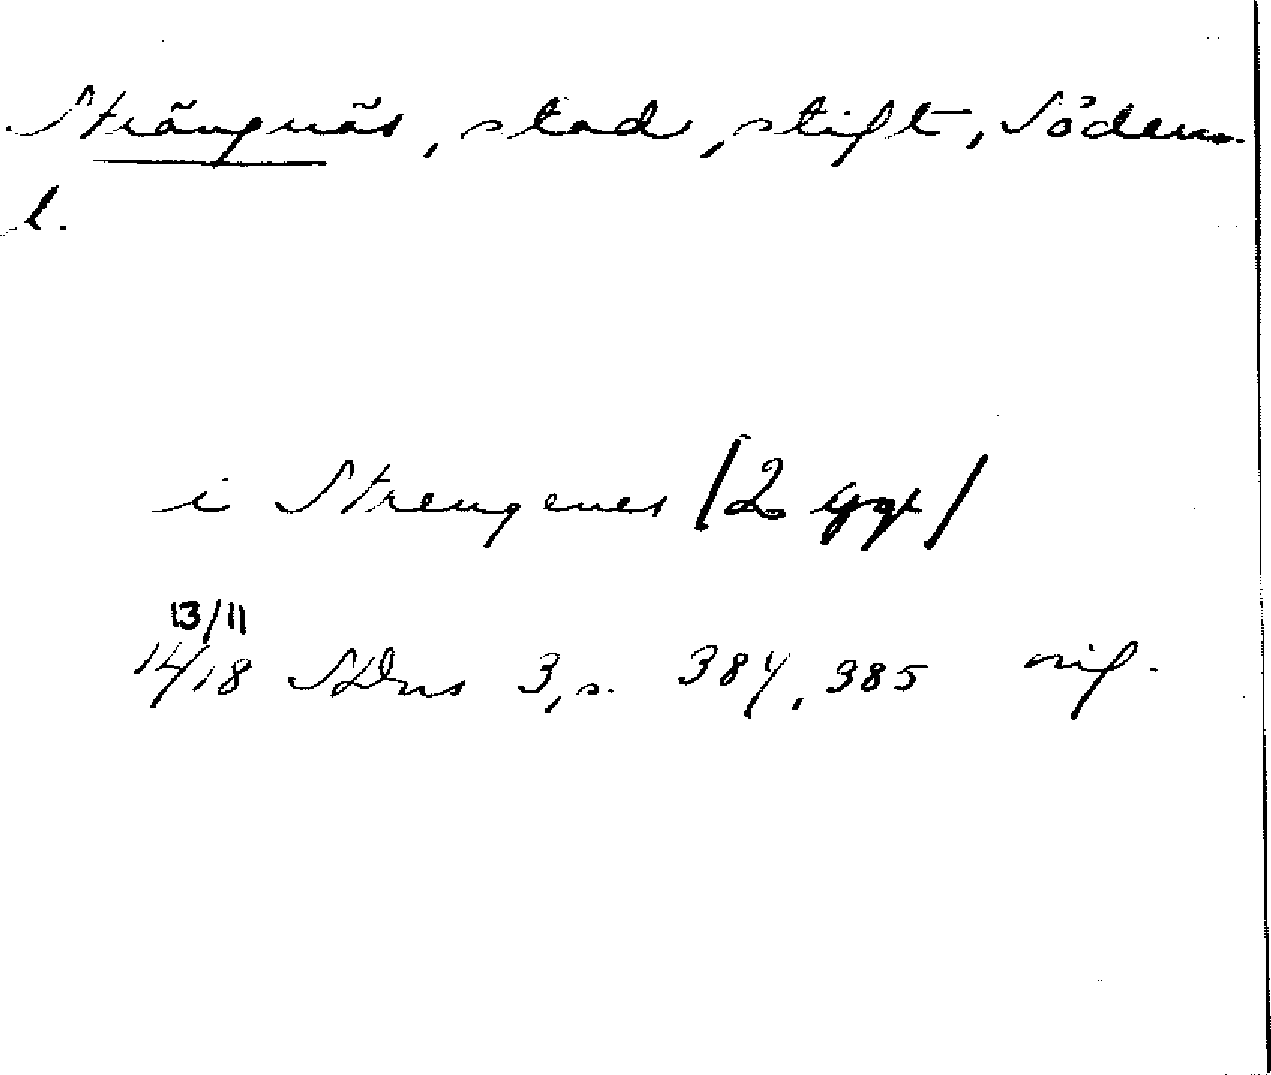 Strängnäs, stad, stift, Söderm.
l.
i Strengenes (2 ggr)
13/11
1418 SDns 3, s. 384, 385 orig.